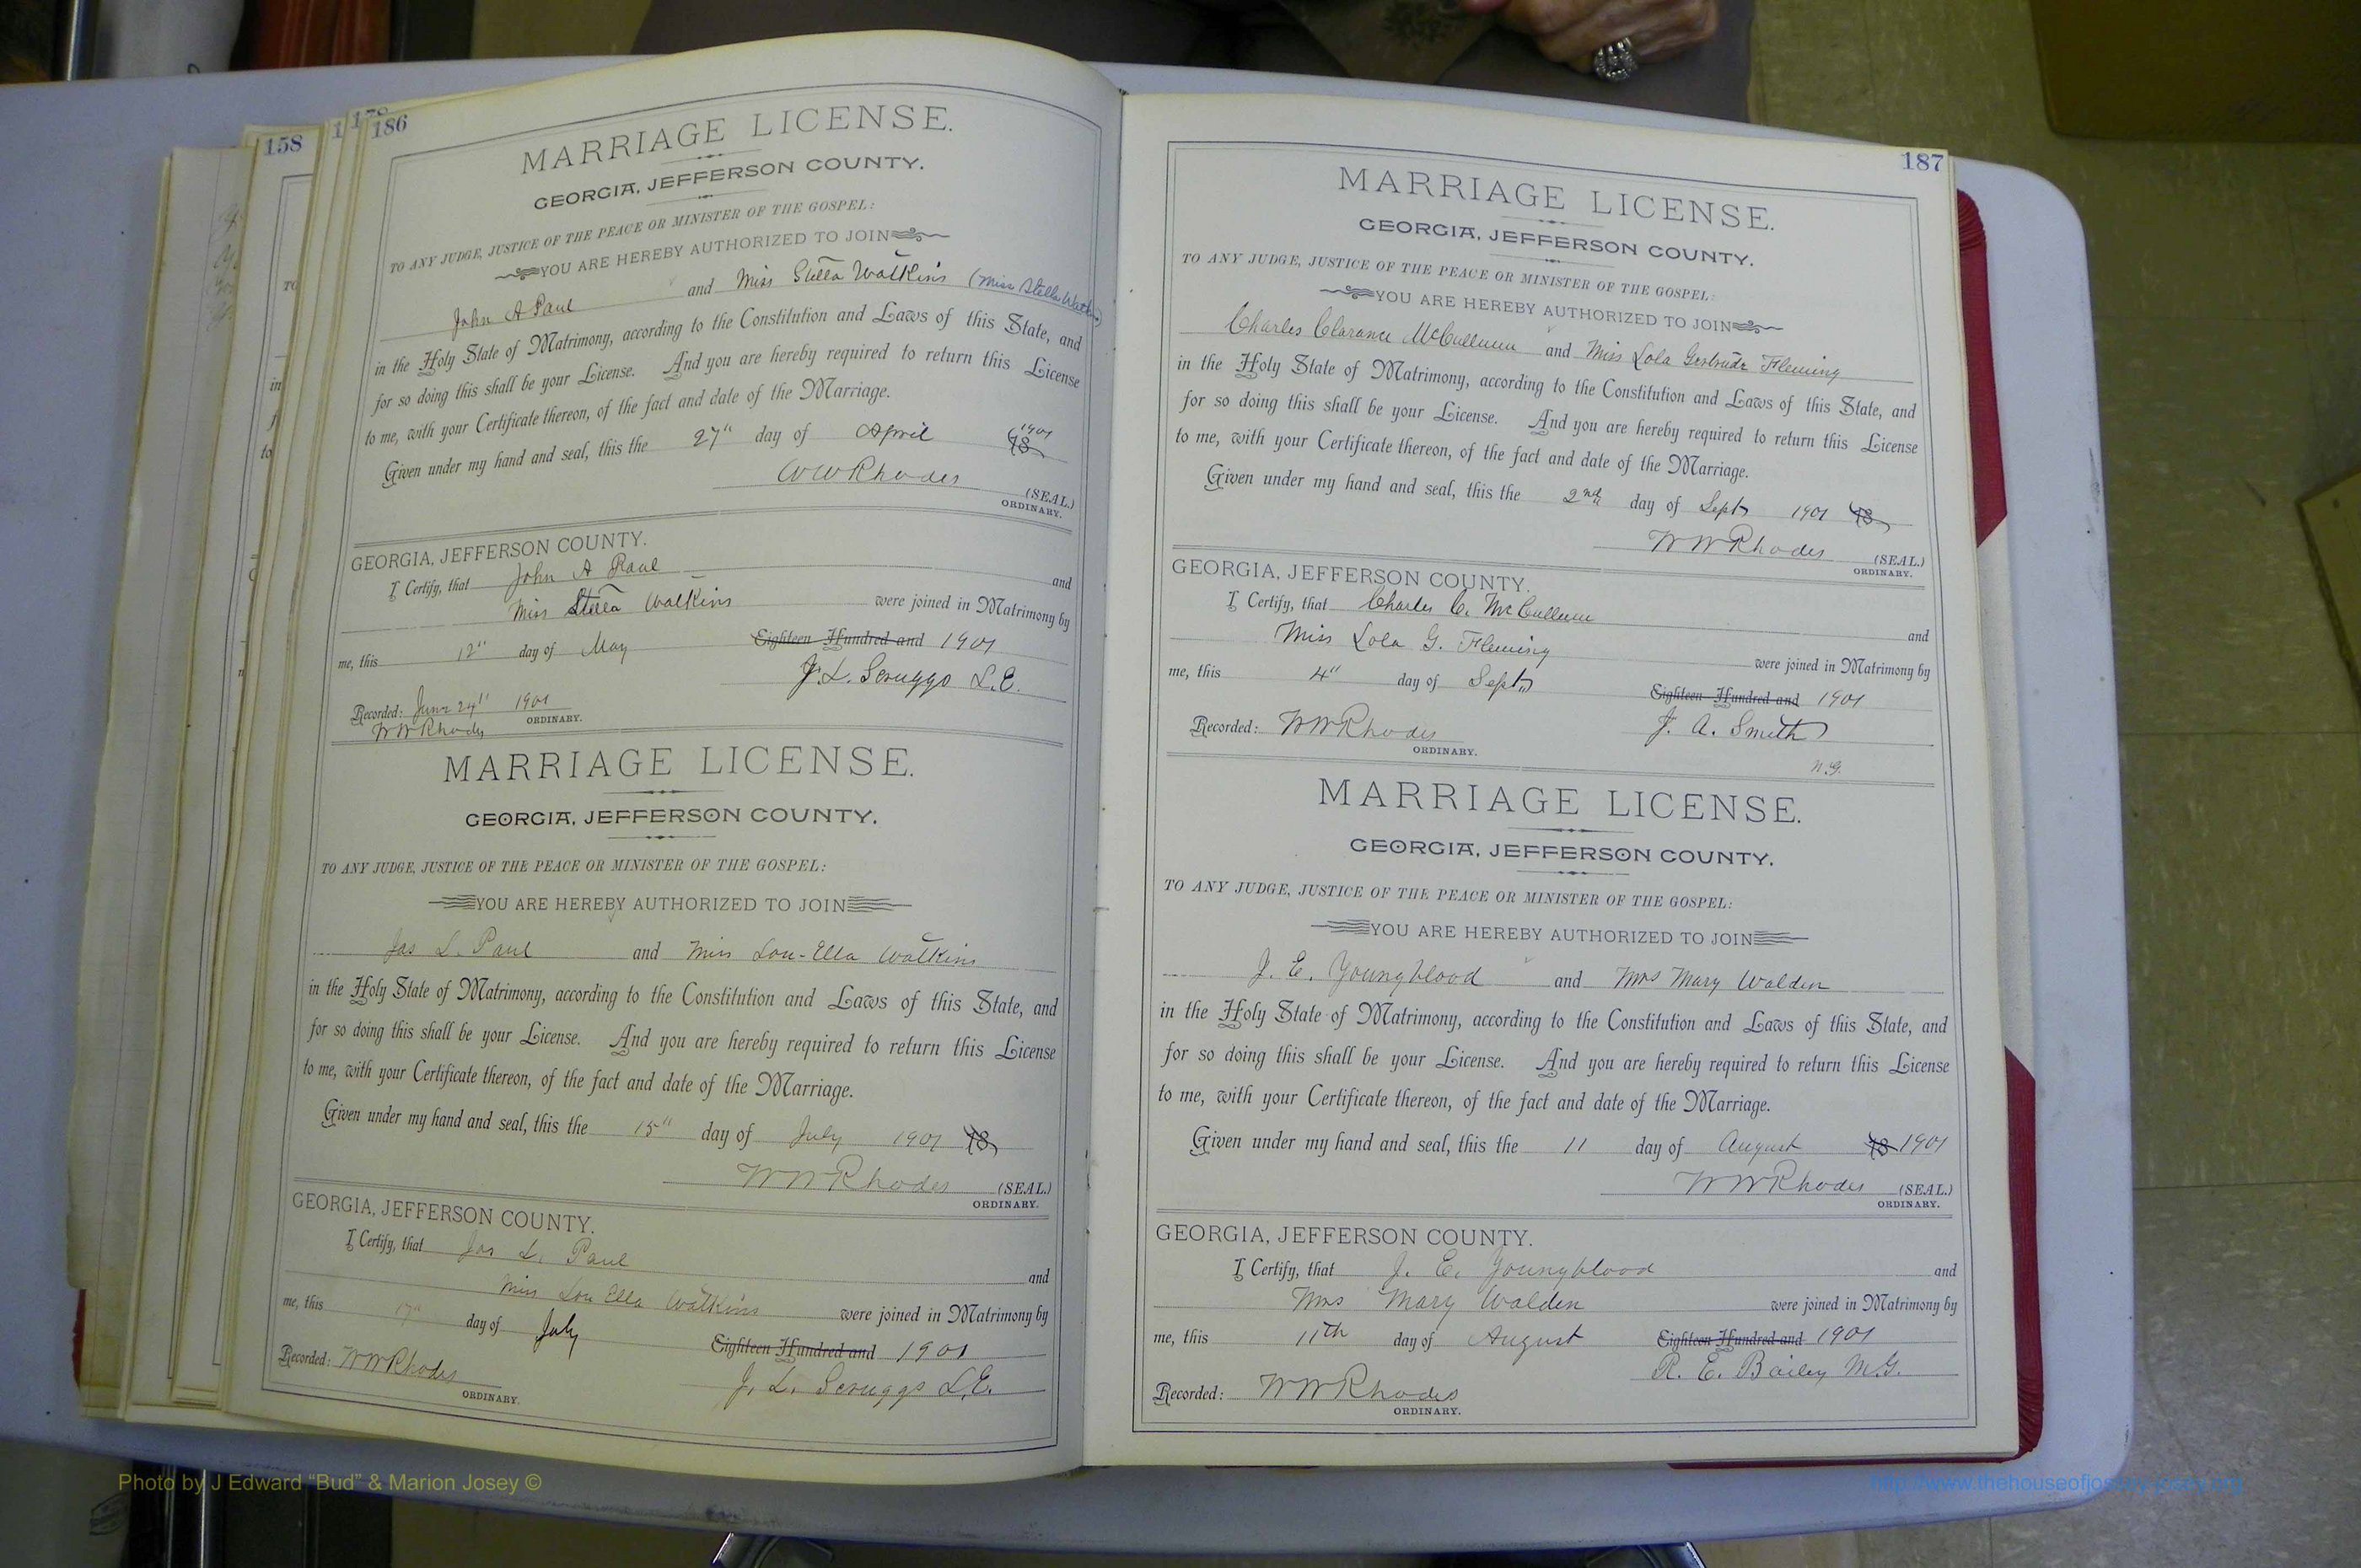 158
186
MARRIAGE LICENSE.
GEORGIA, JEFFERSON COUNTY.
TO ANY JUDGE, JUSTICE OF THE PEACE OR MINISTER OF THE GOSPEL:
YOU ARE HEREBY AUTHORIZED TO JOIN
John A Paul and Miss Stella Watkins (Miss Stella Watkins)
in the Holy State of Matrimony, according to the Constitution and Laws of this State, and
for so doing this shall be your License. And you are hereby required to return this License
to me, with your Certificate thereon, of the fact and date of the Marriage.
Given under my hand and seal, this the 27" day of April 1901 18
WW Rhodes (SEAL.)
ORDINARY.
GEORGIA, JEFFERSON COUNTY.
I Certify, that John A Paul and
Miss Stella Watkins were joined in Matrimony by
me, this 12" day of May Eighteen Hundred and 1901
J. L. Scruggs L.E.
Recorded: June 24" 1901
WW Rhodes ORDINARY.
MARRIAGE LICENSE.
GEORGIA, JEFFERSON COUNTY.
TO ANY JUDGE, JUSTICE OF THE PEACE OR MINISTER OF THE GOSPEL:
YOU ARE HEREBY AUTHORIZED TO JOIN
Jas L. Paul and Miss Lou-Ella Watkins
in the Holy State of Matrimony, according to the Constitution and Laws of this State, and
for so doing this shall be your License. And you are hereby required to return this License
to me, with your Certificate thereon, of the fact and date of the Marriage.
Given under my hand and seal, this the 15" day of July 1901 18
WW Rhodes (SEAL.)
ORDINARY.
GEORGIA, JEFFERSON COUNTY.
I Certify, that Jas L. Paul and
Miss Lou Ella Watkins were joined in Matrimony by
me, this 17" day of July Eighteen Hundred and 1901
Recorded: WW Rhodes J. L. Scruggs L.E.
ORDINARY.
187
MARRIAGE LICENSE.
GEORGIA, JEFFERSON COUNTY.
TO ANY JUDGE, JUSTICE OF THE PEACE OR MINISTER OF THE GOSPEL:
YOU ARE HEREBY AUTHORIZED TO JOIN
Charles Clarance McCullum and Miss Lola Gertrude Fleming
in the Holy State of Matrimony, according to the Constitution and Laws of this State, and
for so doing this shall be your License. And you are hereby required to return this License
to me, with your Certificate thereon, of the fact and date of the Marriage.
Given under my hand and seal, this the 2nd day of Sept 1901 18
WW Rhodes (SEAL.)
ORDINARY.
GEORGIA, JEFFERSON COUNTY.
I Certify, that Charles C. McCullum and
Miss Lola G. Fleming were joined in Matrimony by
me, this 4" day of Sept Eighteen Hundred and 1901
Recorded: WW Rhodes J. A. Smith
ORDINARY.
MARRIAGE LICENSE.
GEORGIA, JEFFERSON COUNTY.
TO ANY JUDGE, JUSTICE OF THE PEACE OR MINISTER OF THE GOSPEL:
YOU ARE HEREBY AUTHORIZED TO JOIN
J. E. Youngblood and Mrs Mary Walden
in the Holy State of Matrimony, according to the Constitution and Laws of this State, and
for so doing this shall be your License. And you are hereby required to return this License
to me, with your Certificate thereon, of the fact and date of the Marriage.
Given under my hand and seal, this the 11 day of August 18 1901
WW Rhodes (SEAL.)
ORDINARY.
GEORGIA, JEFFERSON COUNTY.
I Certify, that J. E. Youngblood and
Mrs Mary Walden were joined in Matrimony by
me, this 11th day of August Eighteen Hundred and 1901
R. E. Bailey M.G.
Recorded: WW Rhodes
ORDINARY.
Photo by J Edward “Bud” & Marion Josey ©